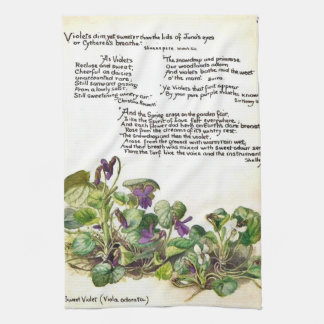 Violets dim, yet sweeter than the lids of Juno's eyes
or Cytherea's breathe.
Shakespere
"As Violets
Recluse and sweet,
Cheerful as daisies
unaccounted rare,
Still sunward gazing
from a lowly seat,
Still sweetening wintry air."
Christina Rossetti
"The snowdrop and primrose
Our woodlands adorn
And violets bathe in the weet
o' the morn."
Burns
"Ye Violets that first appear
By your pure purple mantles known"
Sir Henry
"And the Spring arose on the garden fair,
Like the Spirit of Love felt everywhere;
And each flower and herb on Earth's dark breast
Rose from the dreams of its wintry rest.
The Snowdrop and then the violet,
Arose from the ground with warm rain wet,
And their breath was mixed with sweet odour sent
From the turf, like the voice and the instrument
Shelle
Sweet Violet (Viola odorata)